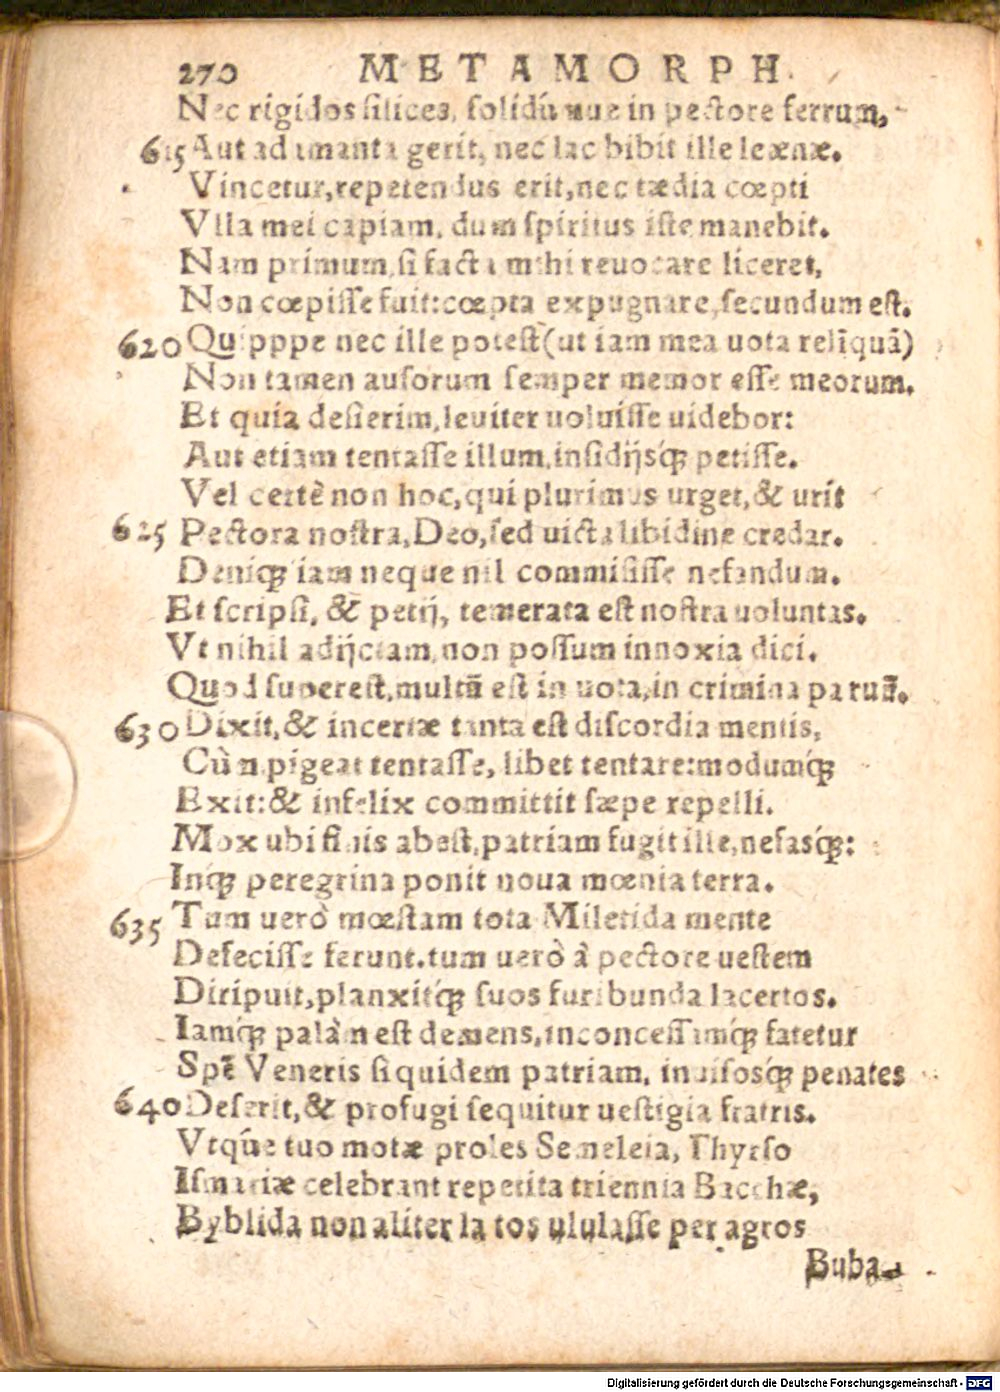 270 METAMORPH.
Nec rigidos silices, solidúue in pectore ferrum,
615 Aut adamanta gerit, nec lac bibit ille leænæ.
Vincetur, repetendus erit, nec tædia cœpti
Vlla mei capiam, dum spiritus iste manebit.
Nam primum, si facta mihi reuocare liceret,
Non cœpisse fuit: cœpta expugnare, secundum est.
620 Quipppe nec ille potest (ut iam mea uota relīquā)
Non tamen ausorum semper memor esse meorum.
Et quia desierim, leuiter uoluisse uidebor:
Aut etiam tentasse illum, insidijsq́; petisse.
Vel certè non hoc, qui plurimus urget, & urit
625 Pectora nostra, Deo, sed uicta libidine credar.
Deniq; iam neque nil commisisse nefandum.
Et scripsi, & petij, temerata est nostra uoluntas.
Vt nihil adijciam, non possum innoxia dici.
Quod superest, multū est in uota, in crimina paruū.
630 Dixit, & incertæ tanta est discordia mentis,
Cùm pigeat tentasse, libet tentare: modumq́;
Exit: & infelix committit sæpe repelli.
Mox ubi finis abest, patriam fugit ille, nefasq́;:
Inq́; peregrina ponit noua mœnia terra.
635 Tum uerò mœstam tota Miletida mente
Defecisse ferunt. tum uerò à pectore uestem
Diripuit, planxitq́; suos furibunda lacertos.
Iamq́; palàm est demens, inconcessamq́; fatetur
Spē Veneris siquidem patriam, inuisosq́; penates
640 Deserit, & profugi sequitur uestigia fratris.
Vtq́ue tuo motæ proles Semeleia, Thyrso
Ismariæ celebrant repetita triennia Bacchæ,
Byblida non aliter latos ululasse per agros
Buba-
Digitalisierung gefördert durch die Deutsche Forschungsgemeinschaft - DFG